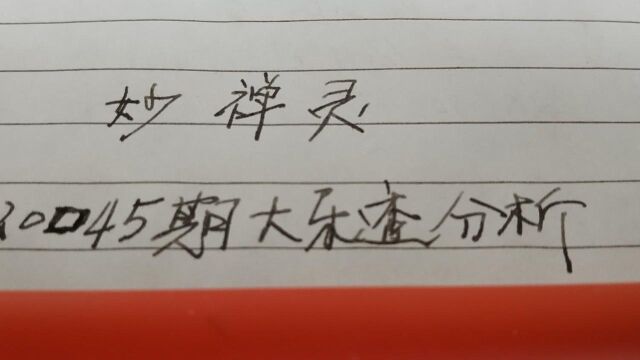 妙禅灵
20045期大乐透分析